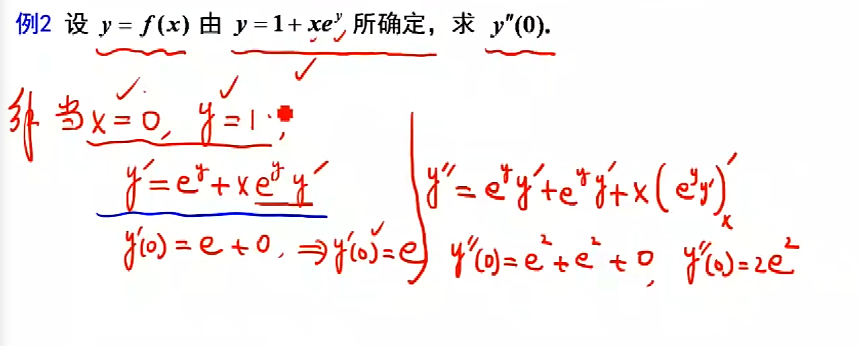 例2 设 y = f(x) 由 y = 1 + xeʸ 所确定，求 y″(0).
解 当 x = 0, y = 1;
y′ = eʸ + xeʸy′
y′(0) = e + 0, ⇒ y′(0) = e
y″ = eʸy′ + eʸy′ + x(eʸy′)′ₓ
y″(0) = e² + e² + 0, y″(0) = 2e²